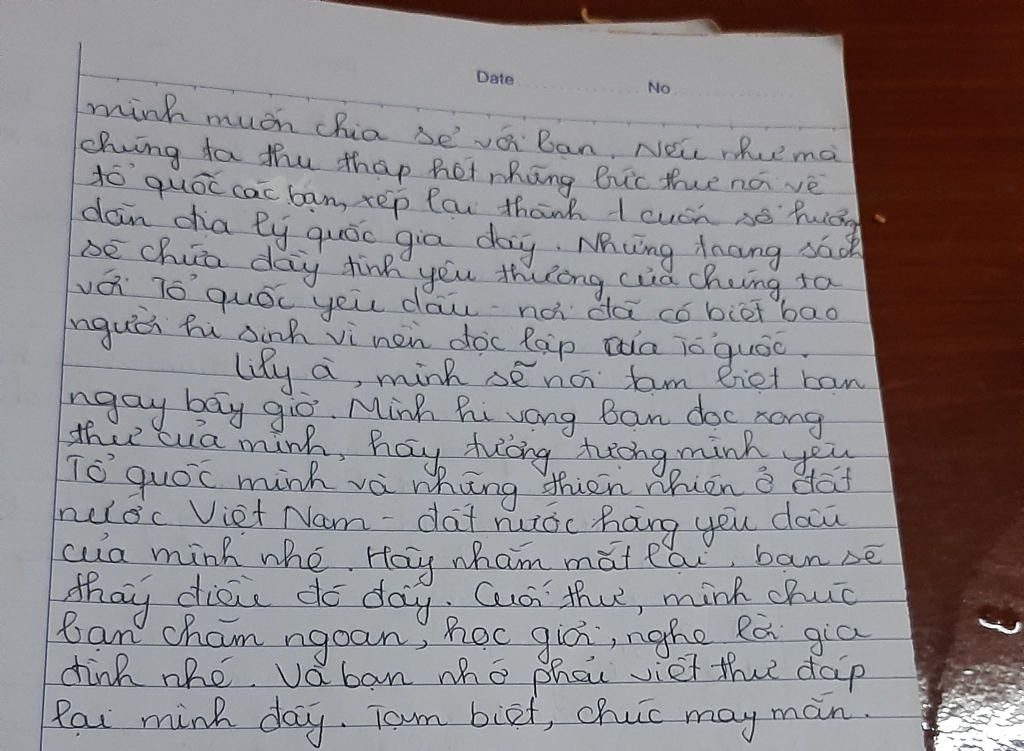 Date No
mình muốn chia sẻ với bạn. Nếu như mà
chúng ta thu thập hết những bức thư nói về
tổ quốc các bạn, xếp lại thành 1 cuốn sổ hướng
dẫn địa lý quốc gia đấy. Những trang sách
sẽ chứa đầy tình yêu thương của chúng ta
với Tổ quốc yêu dấu - nơi đã có biết bao
người hi sinh vì nền độc lập của Tổ quốc.
Lily à, mình sẽ nói tạm biệt bạn
ngay bây giờ. Mình hi vọng bạn đọc xong
thư của mình, hãy tưởng tượng mình yêu
Tổ quốc mình và những thiên nhiên ở đất
nước Việt Nam - đất nước hằng yêu dấu
của mình nhé. Hãy nhắm mắt lại, bạn sẽ
thấy điều đó đấy. Cuối thư, mình chúc
bạn chăm ngoan, học giỏi, nghe lời gia
đình nhé. Và bạn nhớ phải viết thư đáp
lại mình đấy. Tạm biệt, chúc may mắn.